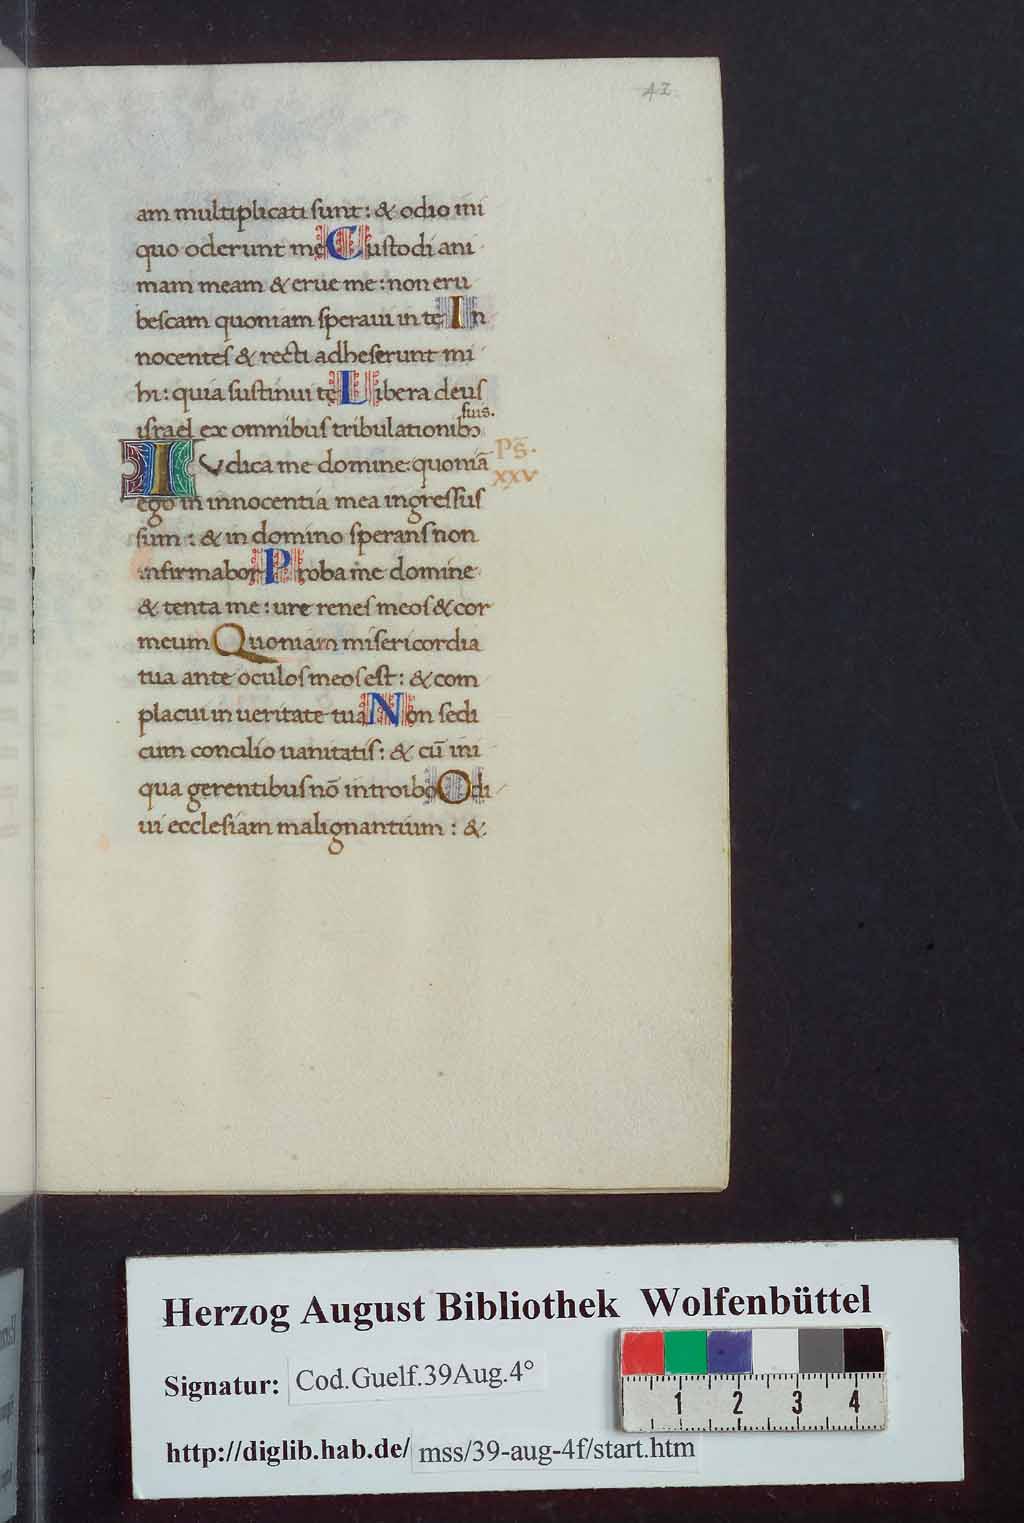 42
am multiplicati sunt: & odio ini
quo oderunt me Custodi ani
mam meam & erue me: non eru
bescam quoniam speraui in te In
nocentes & recti adheserunt mi
hi: quia sustinui te Libera deus
israel ex omnibus tribulationibꝫ suis.
IVdica me domine: quoniā Ps̄.
XXV
ego in innocentia mea ingressus
sum: & in domino sperans non
infirmabor Proba me domine
& tenta me: ure renes meos & cor
meum Quoniam misericordia
tua ante oculos meos est: & com
placui in ueritate tua Non sedi
cum concilio uanitatis: & cū ini
qua gerentibus nō introibo Odi
ui ecclesiam malignantium: &
Herzog August Bibliothek Wolfenbüttel
Signatur: Cod.Guelf.39Aug.4°
1 2 3 4
http://diglib.hab.de/ mss/39-aug-4f/start.htm